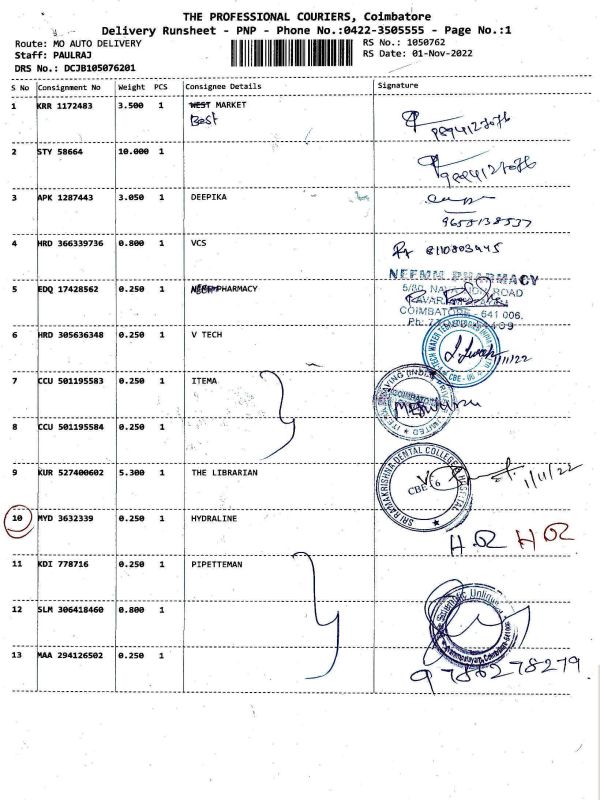 THE PROFESSIONAL COURIERS, Coimbatore
Delivery Runsheet - PNP - Phone No.:0422-3505555 - Page No.:1
Route: MO AUTO DELIVERY
Staff: PAULRAJ
DRS No.: DCJB105076201
RS No.: 1050762
RS Date: 01-Nov-2022
S No Consignment No Weight PCS Consignee Details Signature
1 KRR 1172483 3.500 1 WEST MARKET
Best
9894127076
2 STY 58664 10.000 1
9894127076
3 APK 1287443 3.050 1 DEEPIKA
9655138537
4 HRD 366339736 0.800 1 VCS
8110803445
NEEMM PHARMACY
5 EDQ 17428562 0.250 1 PHARMACY
5/80, ROAD
COIMBATORE - 641 006.
Ph:
6 HRD 305636348 0.250 1 V TECH
1/11/22
CBE
7 CCU 501195583 0.250 1 ITEMA
COIMBATORE
8 CCU 501195584 0.250 1
9 KUR 527400602 5.300 1 THE LIBRARIAN
SRI RAMAKRISHNA DENTAL COLLEGE HOSPITAL
CBE 6
1/11/22
10 MYD 3632339 0.250 1 HYDRALINE
H.O2 H O2
11 KDI 778716 0.250 1 PIPETTEMAN
12 SLM 306418460 0.800 1
The Scientific
13 MAA 294126502 0.250 1
9786278279.